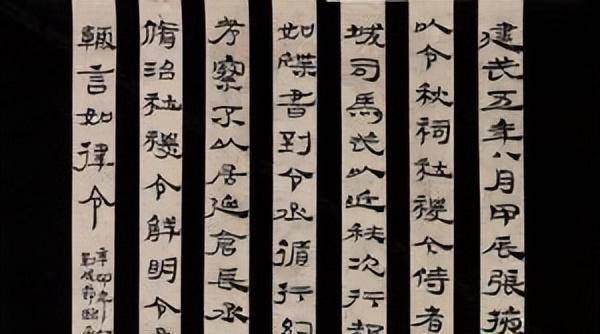 建武五年八月甲辰張掖
以令秋祠社稷今侍者
城司馬武以近秩次行都
如牒書到令丞循行約
考察不以居延倉長丞
脩治社稷令鮮明令
輒言如律令